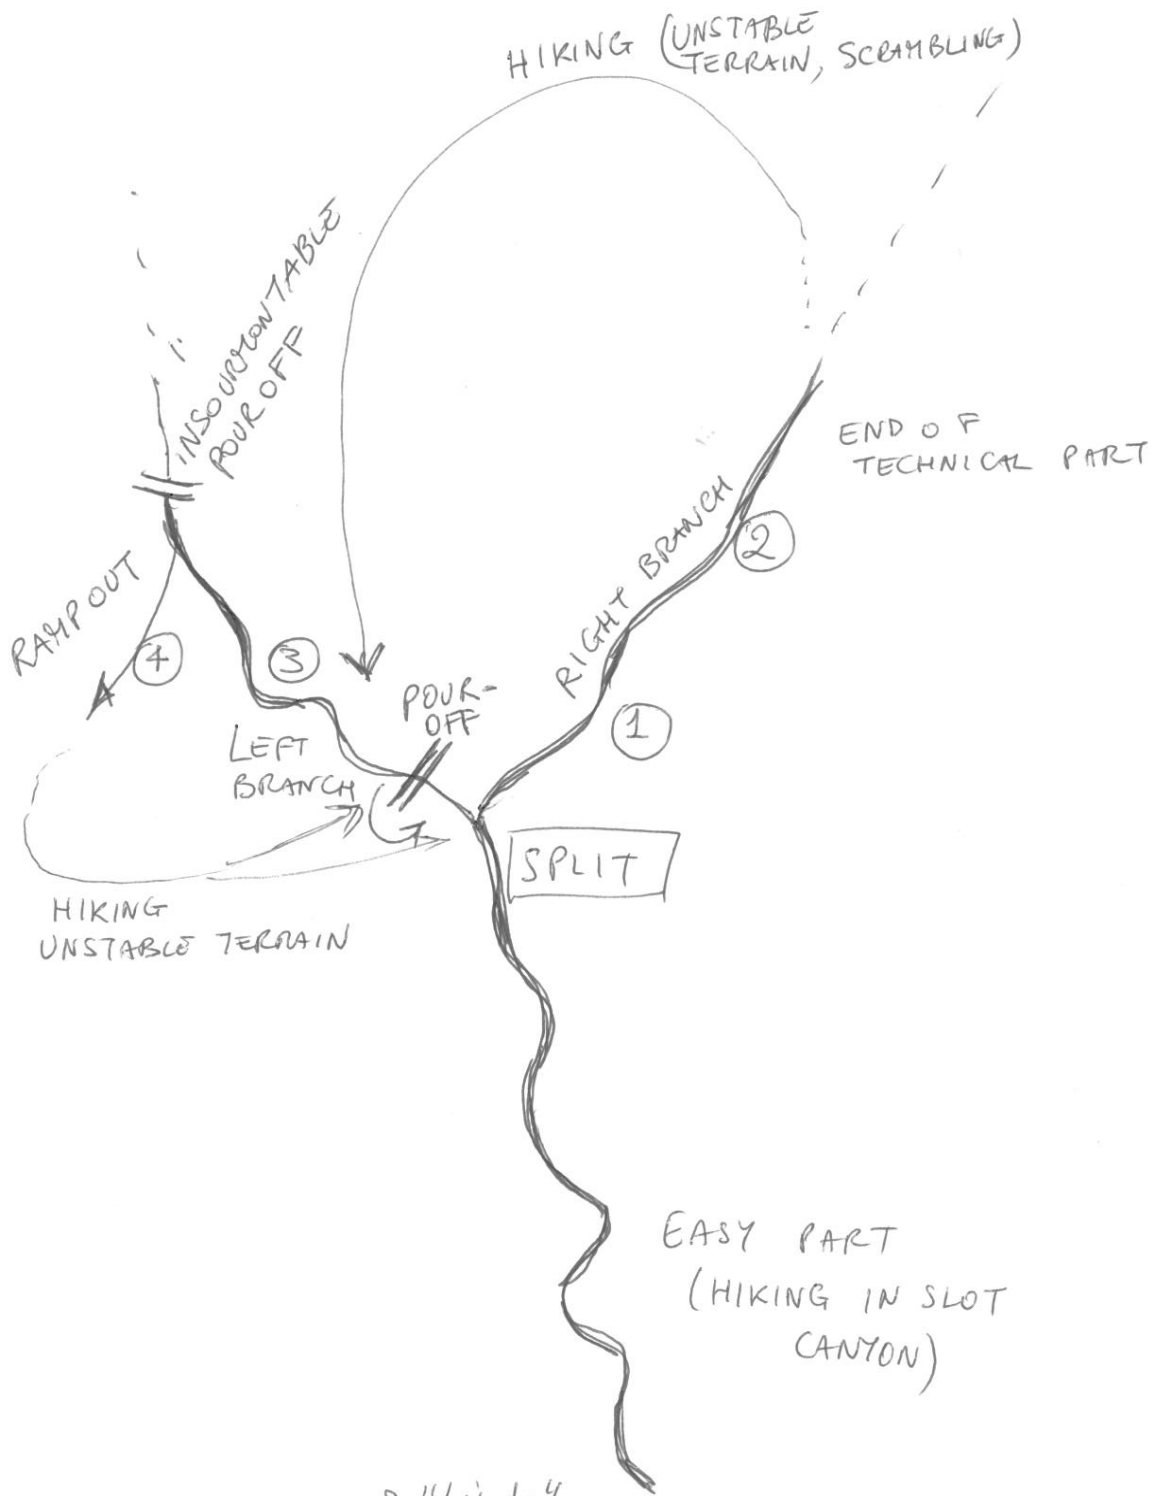 HIKING (UNSTABLE
TERRAIN, SCRAMBLING)
INSOURMONTABLE
POUR OFF
END OF
TECHNICAL PART
RAMP OUT
RIGHT BRANCH
2
4
3
POUR-
OFF
1
LEFT
BRANCH
SPLIT
HIKING
UNSTABLE TERRAIN
EASY PART
(HIKING IN SLOT
CANYON)